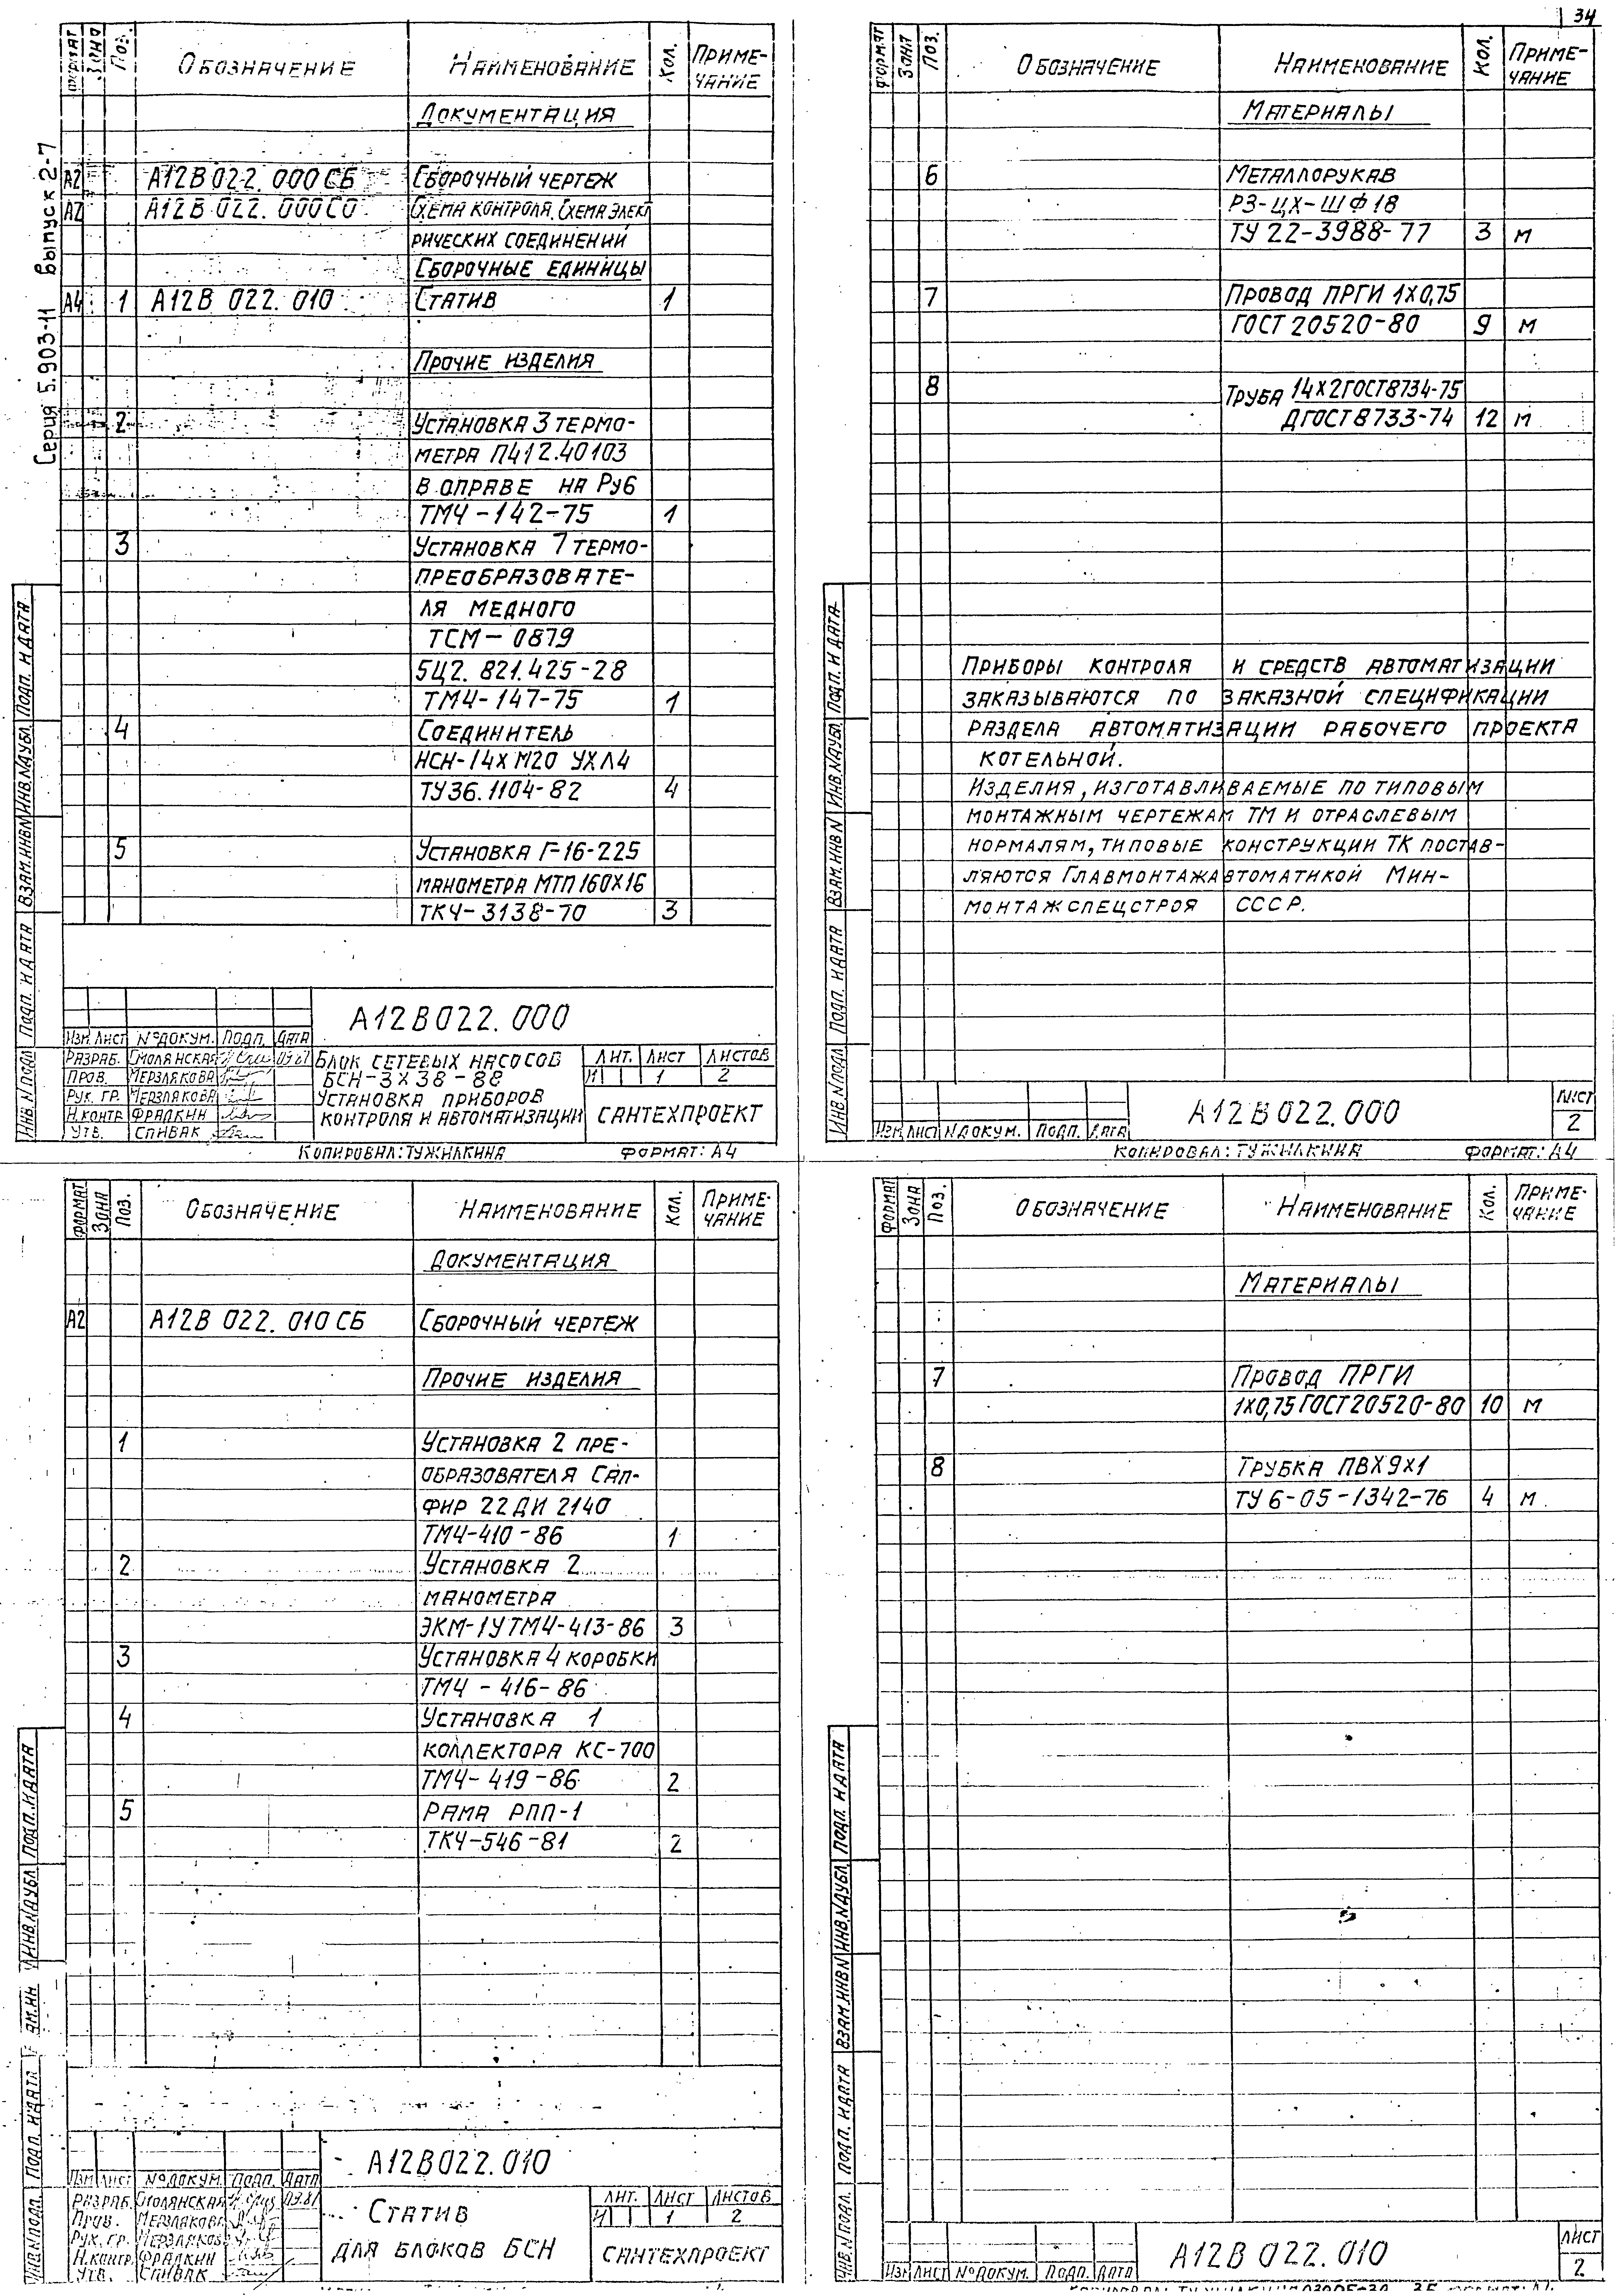 34
Серия 5.903-11 Выпуск 2-7
Формат Зона Поз. Обозначение Наименование Кол. Примечание
Документация
А2 А12В022.000СБ Сборочный чертеж
А2 А12В 022.000СО Схема контроля. Схема элект
рических соединений
Сборочные единицы
А4 1 А12В 022.010 Статив 1
Прочие изделия
2 Установка 3 термо-
метра П412.40103
в оправе на Ру6
ТМ4-142-75 1
3 Установка 7 термо-
преобразовате-
ля медного
ТСМ-0879
5Ц2.821.425-28
ТМ4-147-75 1
4 Соединитель
НСН-14хМ20 УХЛ4
ТУ36.1104-82 4
5 Установка Г-16-225
манометра МТП160х16
ТК4-3138-70 3
Инв.N подл. Подп. и дата Взам.инв N Инв.N дубл. Подп. и дата
А12В022.000
Изм Лист №докум. Подп. Дата
Разраб. Смолянская
Пров. Мерзлякова
Рук. гр. Мерзлякова
Н.контр Фрадкин
Утв. Спивак
Блок сетевых насосов
БСН-3х38-88
Установка приборов
контроля и автоматизации
Лит. Лист Листов
И 1 2
САНТЕХПРОЕКТ
Копировал: Тужилкина Формат: А4
Формат Зона Поз. Обозначение Наименование Кол. Примечание
Материалы
6 Металлорукав
РЗ-ЦХ-ШФ18
ТУ 22-3988-77 3 м
7 Провод ПРГИ 1х0,75
ГОСТ 20520-80 9 м
8 Труба 14х2ГОСТ8734-75
ДГОСТ8733-74 12 м
Приборы контроля и средств автоматизации
заказываются по заказной спецификации
раздела автоматизации рабочего проекта
котельной.
Изделия, изготавливаемые по типовым
монтажным чертежам ТМ и отраслевым
нормалям, типовые конструкции ТК постав-
ляются Главмонтажавтоматикой Мин-
монтажспецстроя СССР.
Инв.N подл. Подп. и дата Взам.инв N Инв.N дубл. Подп. и дата
Изм Лист Nдокум. Подп. Дата
А12В022.000
Лист
2
Копировал: Тужилкина Формат: А4
Формат Зона Поз. Обозначение Наименование Кол. Примечание
Документация
А2 А12В 022.010СБ Сборочный чертеж
Прочие изделия
1 Установка 2 пре-
образователя Сап-
фир 22ДИ 2140
ТМ4-410-86 1
2 Установка 2
манометра
ЭКМ-1У ТМ4-413-86 3
3 Установка 4 коробки
ТМ4-416-86
4 Установка 1
коллектора КС-700
ТМ4-419-86 2
5 Рама РПП-1
ТК4-546-81 2
Инв.N подл. Подп. и дата Инв.N дубл Подп. и дата
А12В022.010
Изм Лист №докум. Подп. Дата
Разраб. Смолянская
Пров. Мерзлякова
Рук. гр. Мерзлякова
Н.контр. Фрадкин
Утв. Спивак
Статив
для блоков БСН
Лит. Лист Листов
И 1 2
САНТЕХПРОЕКТ
Формат Зона Поз. Обозначение Наименование Кол. Примечание
Материалы
7 Провод ПРГИ
1х0,75 ГОСТ20520-80 10 м
8 Трубка ПВХ9х1
ТУ6-05-1342-76 4 м
Инв.N подл. Подп. и дата Взам.инв N Инв.N дубл. Подп. и дата
Изм Лист №докум. Подп. Дата
А12В 022.010
Лист
2